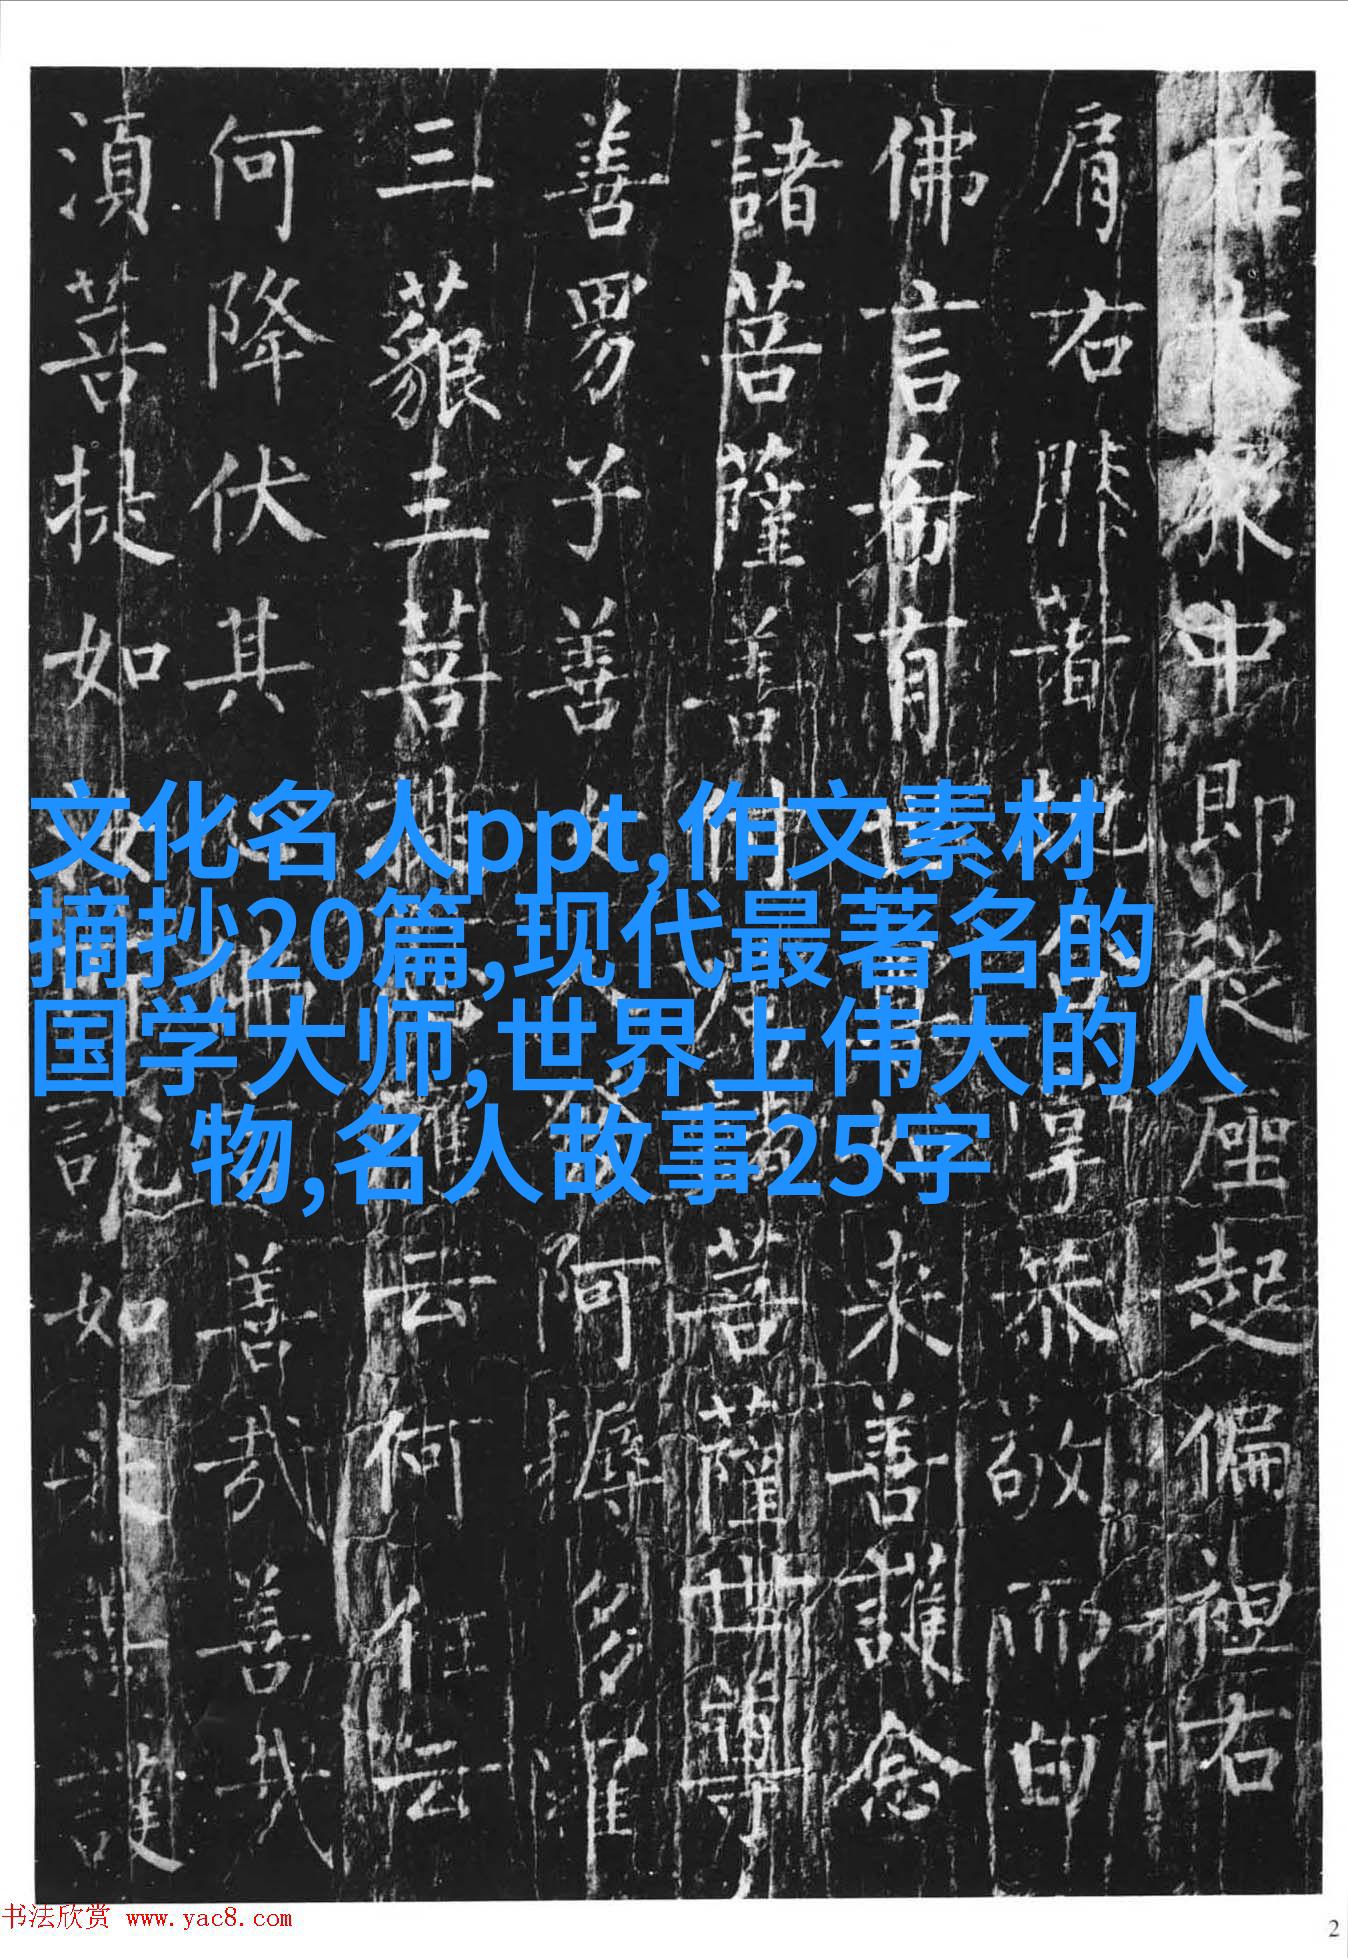 在大眾中即從座起偏袒右
肩右膝著地合掌恭敬而白
佛言希有世尊如來善護念
諸菩薩善付囑諸菩薩世尊
善男子善女人發阿耨多羅
三藐三菩提云何住云
何降伏其心佛言善哉善哉
湏菩提如汝所說如來善護
文化名人ppt,作文素材
摘抄20篇,现代最著名的
国学大师,世界上伟大的人
物,名人故事25字
书法欣赏 www.yac8.com
2